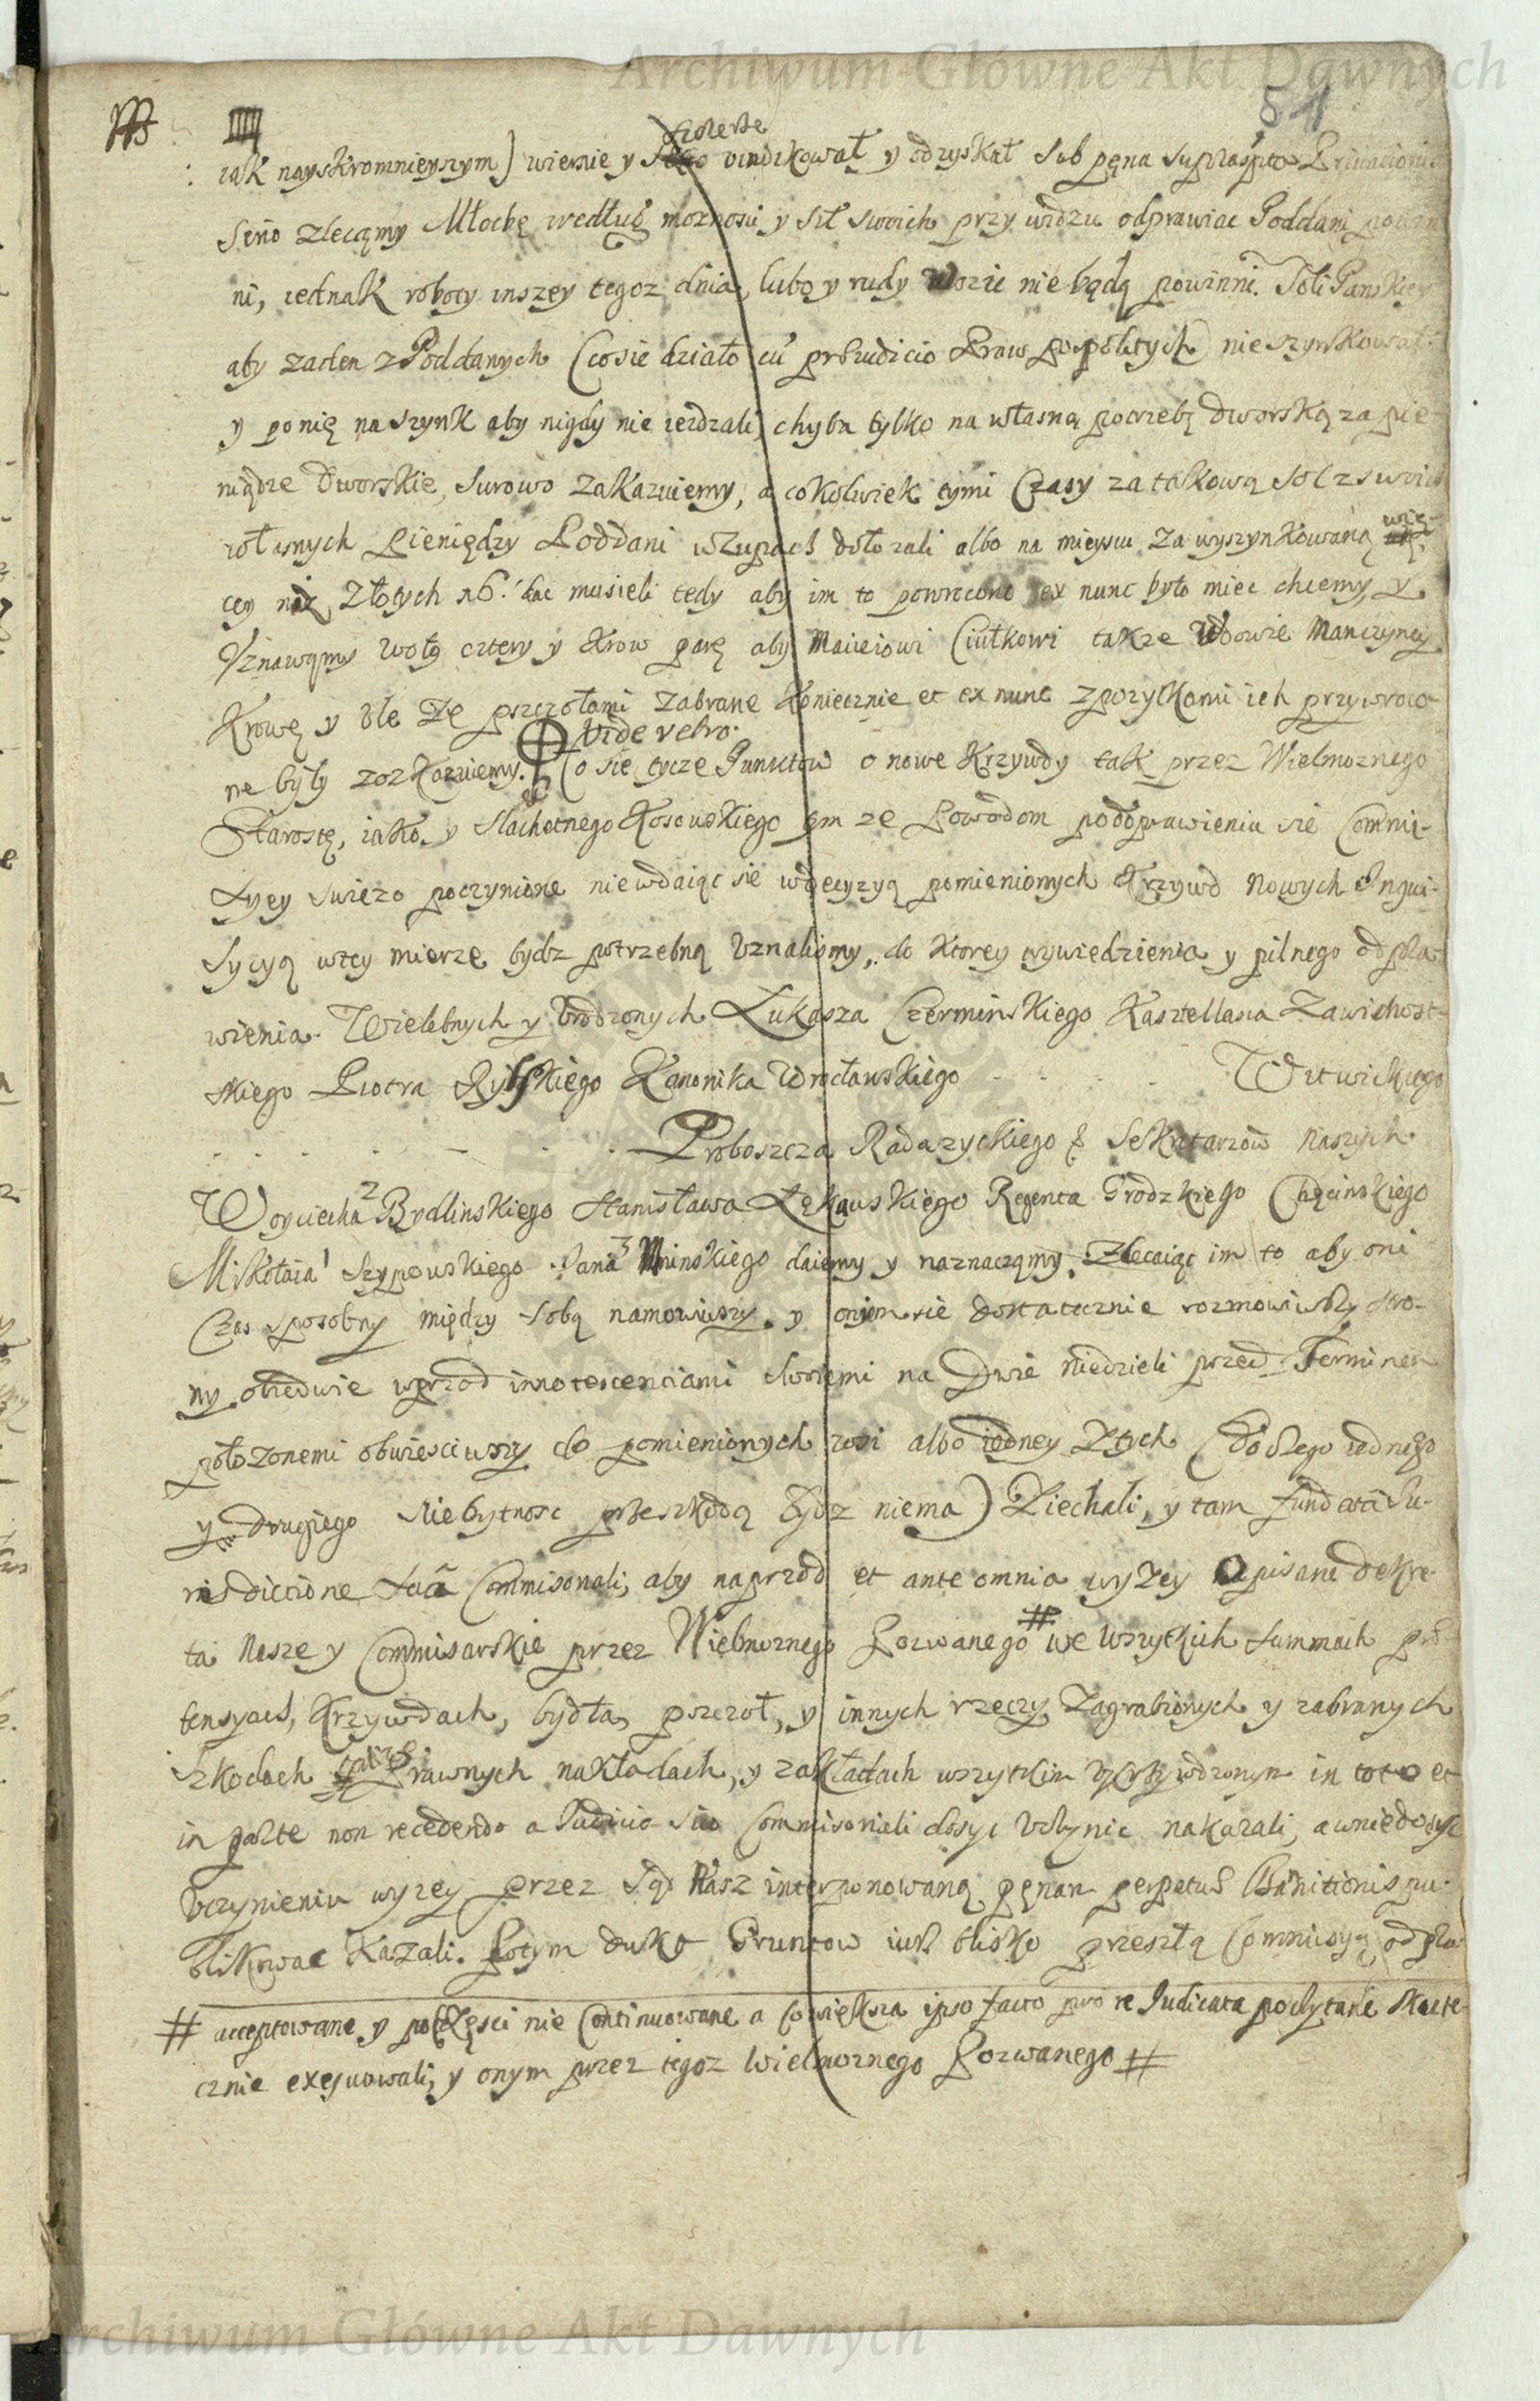 Archiwum Główne Akt Dawnych
51
iak nayskromnieyszym) wiernie y szczerze vindikował y odzyskał sub pęna supraspta Privationis
Seno zlecamy Młocbę według moznosci y sił swoich przy widzu odprawiac Poddani powin
ni, iednak roboty inszey tegoz dnia, lubo y rudy wozic nie będą powinni. Soli Panskiey
aby zaden z Poddanych (co sie działo cu prëiudicio Praw pospolitych) nie szynkował
y po nię na szynk aby nigdy nie iezdzali, chyba tylko na własną potrzebę dworską za pie-
niądze dworskie, surowo zakazuiemy, a cokolwiek tymi czasy za takową sol z swoich
własnych pieniędzy Poddani w Zupach dołozali albo na mieyscu za wyszynkowaną wię-
cey niz złotych 16. dac musieli tedy aby im to powrocono ex nunc było miec chcemy, y
Uznawamy woły cztery y krow parę aby Macieiowi Ciułkowi takze Wdowie Manczyney
Krowę y Ule ze pszczołami zabrane koniecznie et ex nunc z pozytkami ich przywroco-
ne były rozkazuiemy. Vide retro. Co się tycze Punctow o nowe Krzywdy tak przez Wielmoznego
Starostę, iako y Slachetnego Kosowskiego ym ze Powodom po odprawieniu sie Commi-
syey swiezo poczynione nie wdaiąc sie w decyzyą pomienionych Krzywd nowych Inqui-
sycyą w tey mierze bydz potrzebną uznalismy, do ktorey wywiedzienia y pilnego odpra-
wienia Wielebnych y Urodzonych Łukasza Czerminskiego Kasztellana Zawichost-
skiego Piotra Rybskiego Kanonika Wrocławskiego . . . . Witwickiego
. . . . . Proboszcza Radaszyckiego & Sekretarzow Naszych
Woyciecha 2 Bydlinskiego Stanisława Łękawskiego Regenta Grodzkiego Chęcinskiego
Mikołaia 1 Szypowskiego Jana 3 Mninskiego daiemy y naznaczamy. Zlecaiąc im to aby oni
Czas sposobny między sobą namowiwszy y onym sie dostatecznie rozmowiwszy Stro-
ny obiedwie wprzod innotescenciami swoiemi na Dwie niedzieli przed Terminem
połozonemi obwiesciwszy do pomienionych wsi albo iedney z tych (do czego iednego
y drugiego niebytnosc przeszkodą bydz niema) Ziechali, y tam fundata Iu-
risdictione sua Commisoriali, aby naprzod et ante omnia wyzey opisane dekre-
ta Nasze y Commisarskie przez Wielmoznego Pozwanego # we wszytkich summach prë-
tensyach, Krzywdach, bydła, pszczoł, y innych rzeczy zagrabionych y zabranych
Szkodach także prawnych nakładach, y zakładach wszytkim Ukrzywdzonym in toto et
in parte non recedendo a Iudicio suo Commisoriali dosyc uczynic nakazali, a w niedosyc
uczynieniu wyzey przez Sąd Nasz interponowaną pęnam perpetuë Banitionis pu-
blikowac kazali. Potym dukt Gruntow iuz blisko przeszłą Commisyą odpra-
# acceptowane y po części nie continuowane a co większa ipso facto pro re Iudicata poczytane skute-
cznie exequowali, y onym przez tegoz Wielmoznego Pozwanego #
Archiwum Główne Akt Dawnych